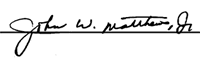 John W. Matthews, Jr